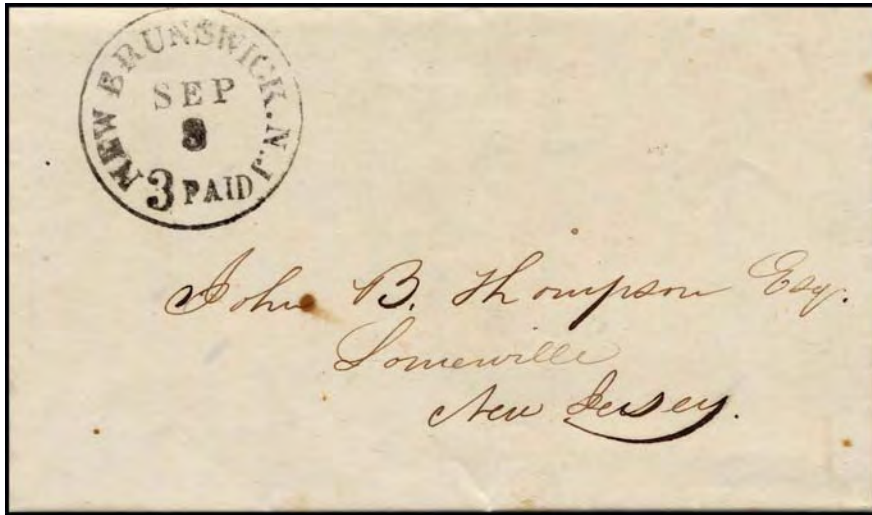 NEW BRUNSWICK. N.J.
SEP
8
3 PAID
John B. Thompson Esq.
Somerville
New Jersey.